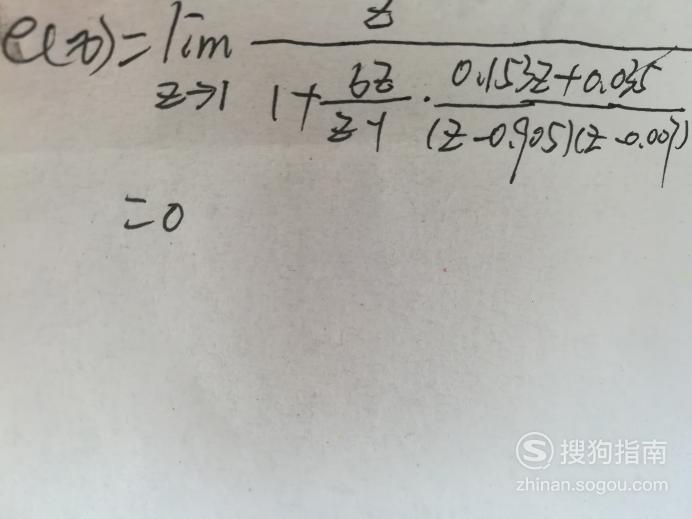 e(∞)=lim z→1 z / (1+ 6z/(z-1) · (0.153z+0.035)/((z-0.905)(z-0.007)))
=0
S 搜狗指南
zhinan.sogou.com